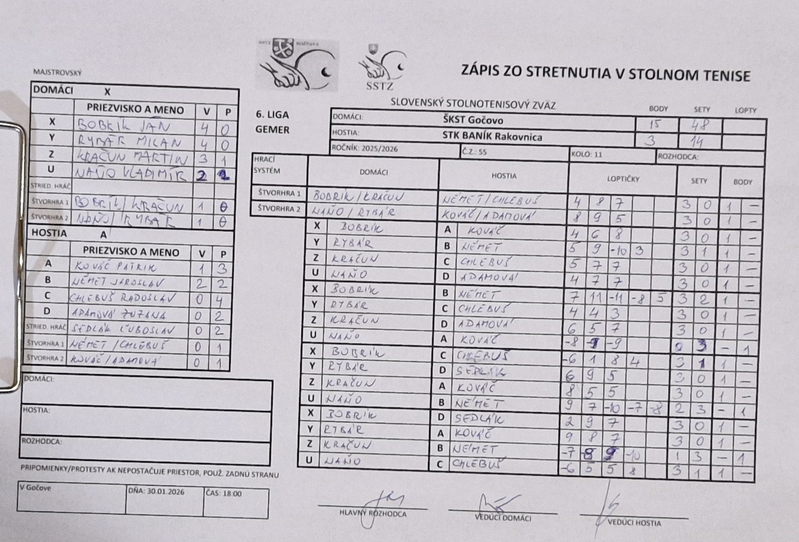 ZÁPIS ZO STRETNUTIA V STOLNOM TENISE
SSTZ
SLOVENSKÝ STOLNOTENISOVÝ ZVÄZ
MAJSTROVSKÝ
DOMÁCI X
PRIEZVISKO A MENO V P
X BOBRÍK JÁN 4 0
Y RYBÁR MILAN 4 0
Z KRAČUN MARTIN 3 1
U NAŇO VLADIMÍR 2 2
STRIED. HRÁČ
ŠTVORHRA 1 BOBRÍK/KRAČUN 1 0
ŠTVORHRA 2 NAŇO/RYBÁR 1 0
HOSTIA A
PRIEZVISKO A MENO V P
A KOVÁČ PATRIK 1 3
B NÉMET JAROSLAV 2 2
C CHLEBUŠ RADOSLAV 0 4
D ADAMOVÁ ZUZANA 0 2
STRIED. HRÁČ SEDLÁK ĽUBOSLAV 0 2
ŠTVORHRA 1 NÉMET/CHLEBUŠ 0 1
ŠTVORHRA 2 KOVÁČ/ADAMOVÁ 0 1
DOMÁCI:
HOSTIA:
ROZHODCA:
PRIPOMIENKY/PROTESTY AK NEPOSTAČUJE PRIESTOR, POUŽ. ZADNÚ STRANU
V Gočove DŇA: 30.01.2026 ČAS: 18:00
6. LIGA
GEMER
BODY SETY LOPTY
DOMÁCI: ŠKST Gočovo 15 48
HOSTIA: STK BANÍK Rakovnica 3 14
ROČNÍK: 2025/2026 Č.Z: 55 KOLO: 11 ROZHODCA:
HRACÍ SYSTÉM DOMÁCI HOSTIA LOPTIČKY SETY BODY
ŠTVORHRA 1 BOBRÍK/KRAČUN NÉMET/CHLEBUŠ 4 8 7 3 0 1 –
ŠTVORHRA 2 NAŇO/RYBÁR KOVÁČ/ADAMOVÁ 8 9 5 3 0 1 –
X BOBRÍK A KOVÁČ 4 6 8 3 0 1 –
Y RYBÁR B NÉMET 5 9 -10 3 3 1 1 –
Z KRAČUN C CHLEBUŠ 5 7 7 3 0 1 –
U NAŇO D ADAMOVÁ 4 7 7 3 0 1 –
X BOBRÍK B NÉMET 7 11 -11 -8 5 3 2 1 –
Y RYBÁR C CHLEBUŠ 4 4 3 3 0 1 –
Z KRAČUN D ADAMOVÁ 6 5 7 3 0 1 –
U NAŇO A KOVÁČ -8 -9 0 3 – 1
X BOBRÍK C CHLEBUŠ -6 1 8 4 3 1 1 –
Y RYBÁR D SEDLÁK 6 9 5 3 0 1 –
Z KRAČUN A KOVÁČ 8 5 5 3 0 1 –
U NAŇO B NÉMET 9 7 -10 -7 -8 2 3 – 1
X BOBRÍK D SEDLÁK 2 9 7 3 0 1 –
Y RYBÁR A KOVÁČ 9 8 7 3 0 1 –
Z KRAČUN B NÉMET -7 -10 1 3 – 1
U NAŇO C CHLEBUŠ -6 5 5 8 3 1 1 –
HLAVNÝ ROZHODCA VEDÚCI DOMÁCI VEDÚCI HOSTIA